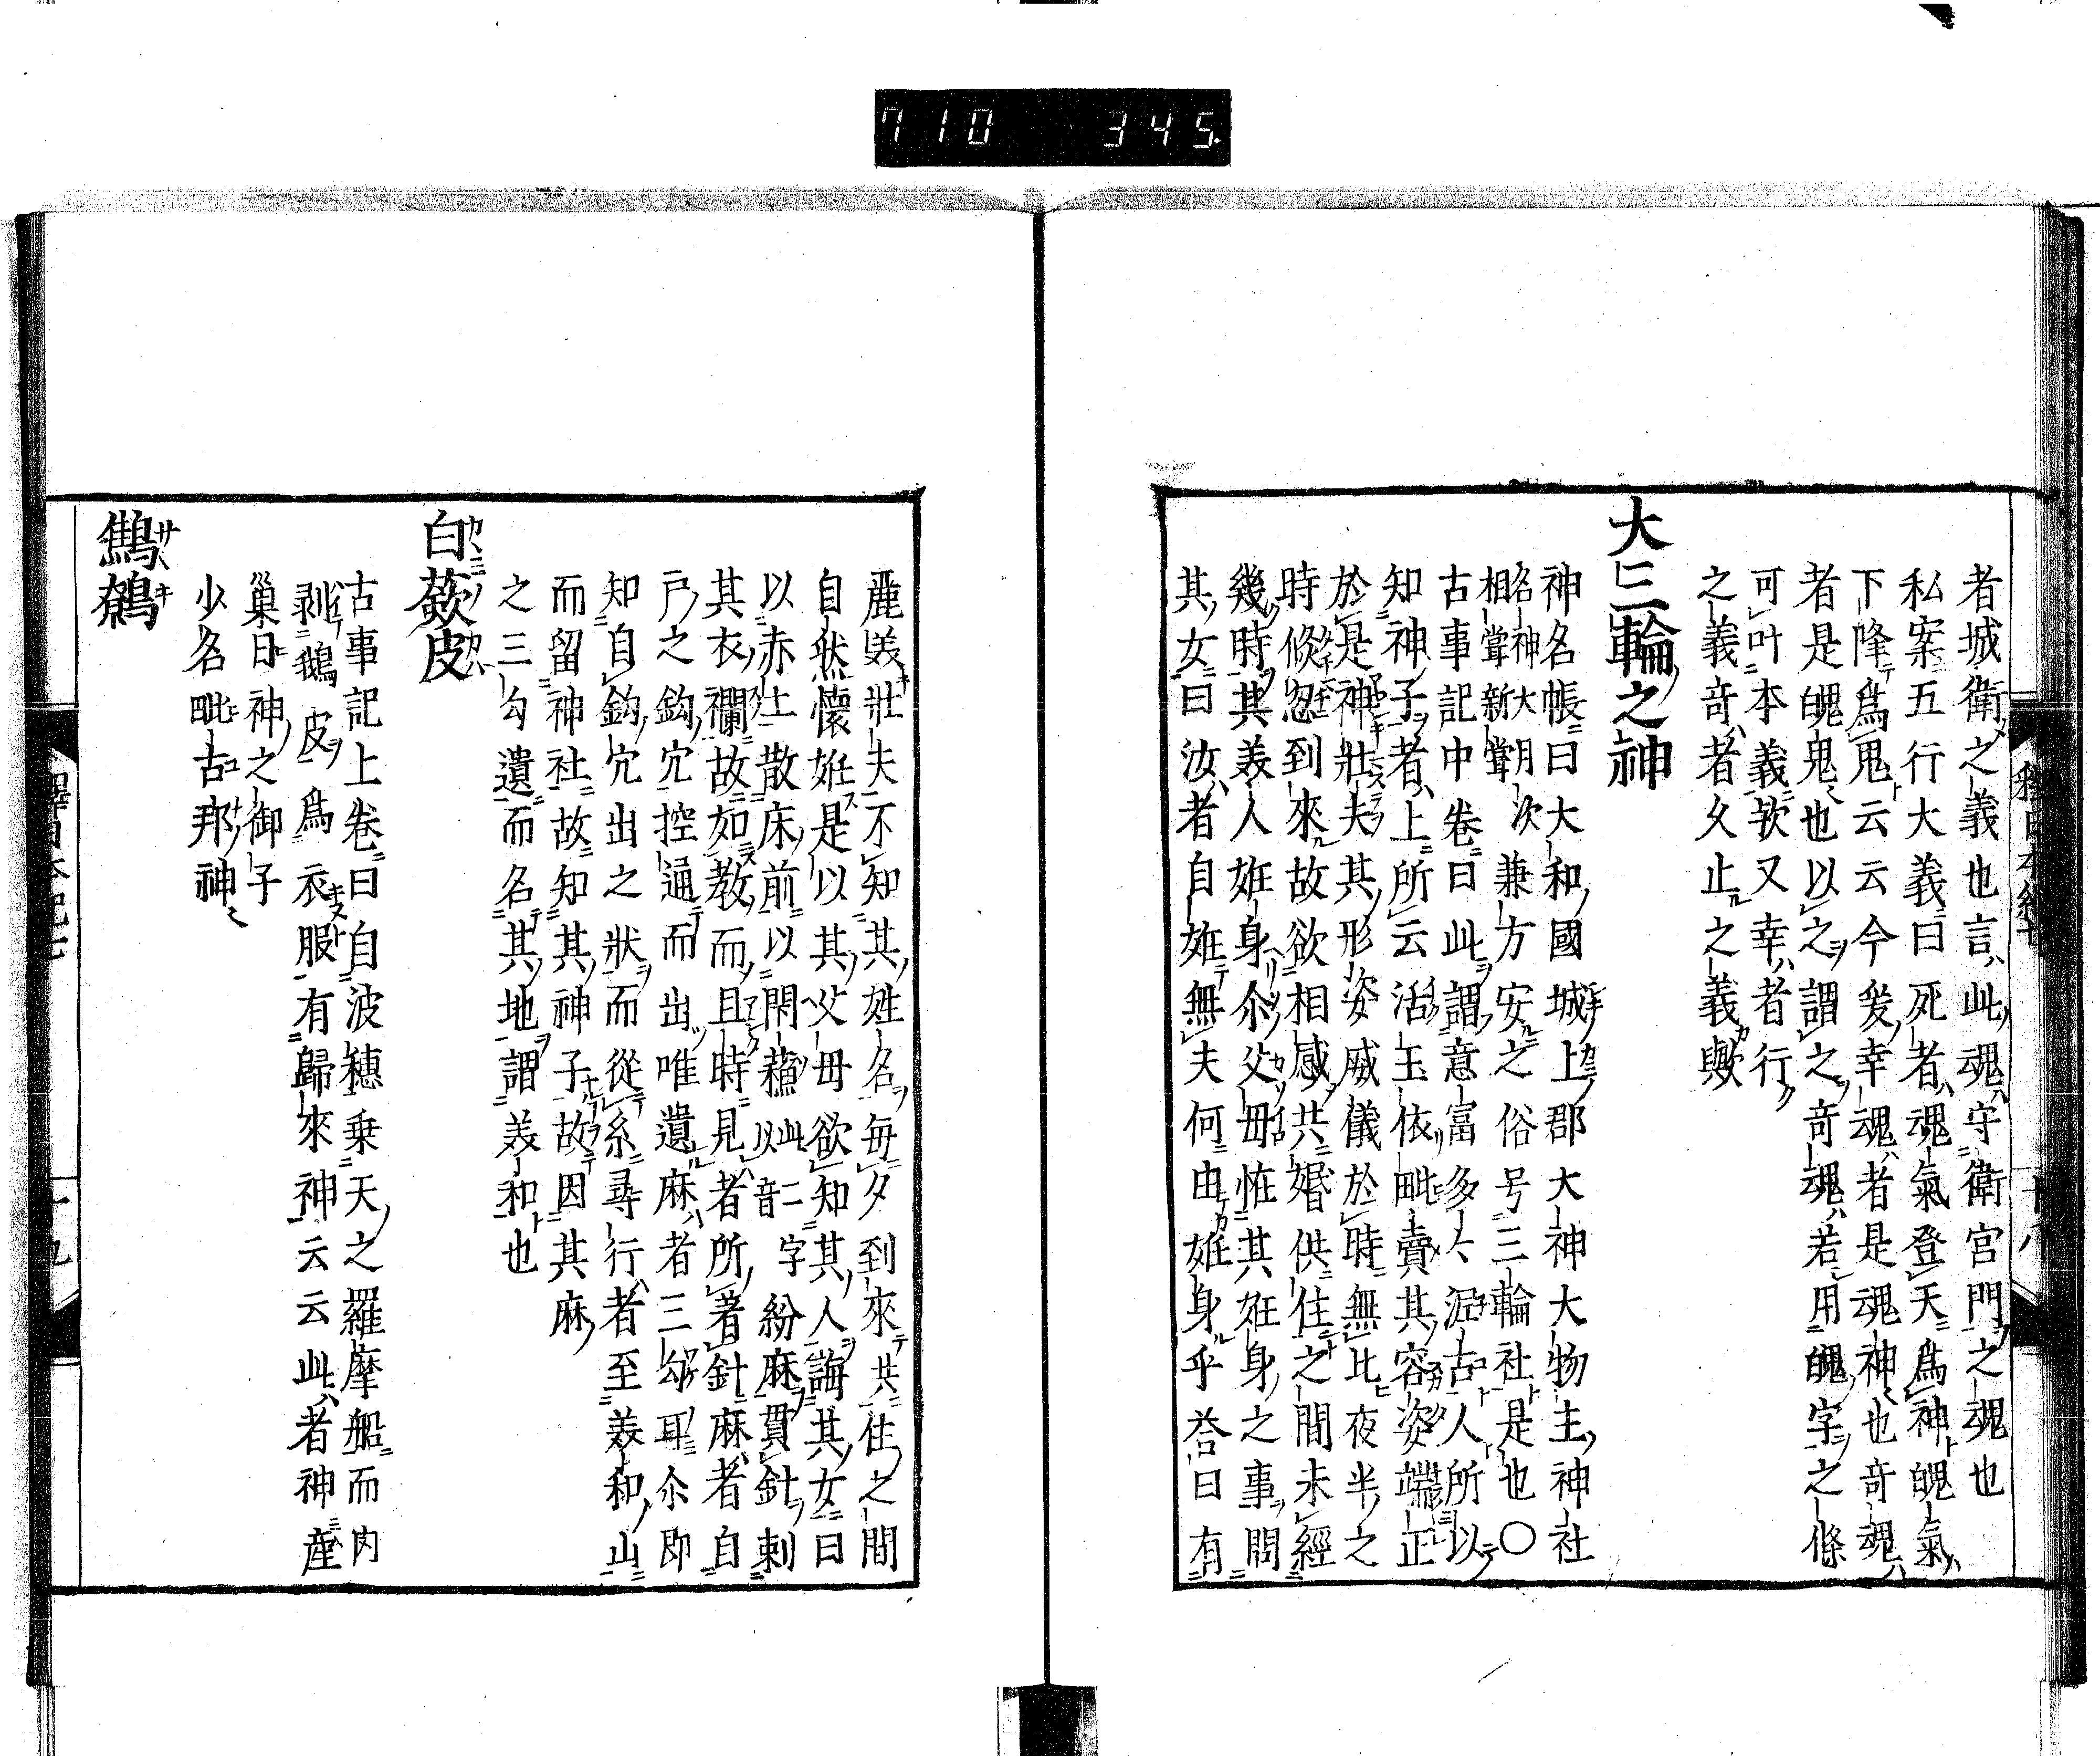 710 345
者城衛之義也言此魂守衛宮門之魂也
私案五行大義曰死者魂氣登天爲神魄氣
下降爲鬼云云今爰幸魂者是魂神也奇魂
者是魄鬼也以之謂之奇魂若用魄字之條
可叶本義歟又幸者行
之義奇者久止之義歟
大三輪之神
神名帳曰大和國城上郡大神大物主神社
名神大月次
相甞新甞
兼方安之俗号三輪社是也○
古事記中卷曰此謂意富多々泥古人所以
知神子者上所云活玉依毗賣其容姿端正
於是神壯夫其形姿威儀於時無比夜半之
時倐忽到來故欲相感共婚供住之間未經
幾時其美人姙身尒父母恠其姙身之事問
其女曰汝者自姙無夫何由姙身乎荅曰有
麗美壯夫不知其姓名毎夕到來共住之間
自然懷姙是以其父母欲知其人誨其女曰
以赤土散床前以閇蘓此二字以音紡麻貫針刺
其衣襴故如教而且時見者所著針麻者自
戸之鈎穴控通而出唯遺麻者三勾耳尒即
知自鈎穴出之狀而從糸尋行者至美和山
而留神社故知其神子故因其麻
之三勾遺而名其地謂美和也
白蘞皮
古事記上卷曰自波穗乗天之羅摩船而內
剥鵝皮爲衣服有歸來神云云此者神産
巢日神之御子
少名毗古那神
鷦鷯